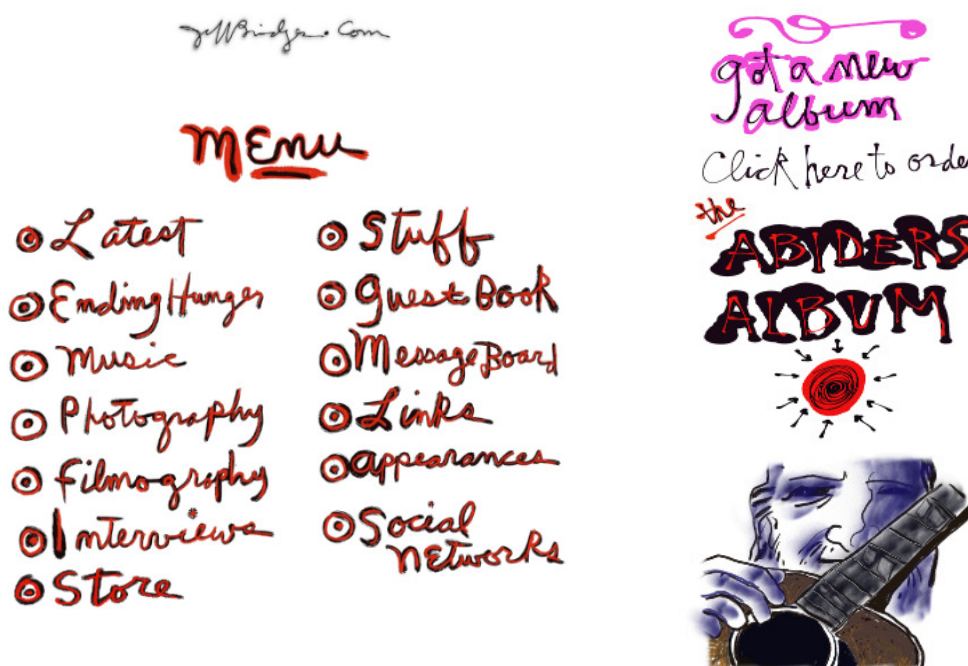 JeffBridges.Com
MEnu
Latest
Ending Hunger
Music
Photography
Filmography
Interviews
Store
Stuff
guest Book
Message Board
Links
appearances
Social
nEtworks
got a new
album
Click here to order
the
ABIDERS
ALBUM